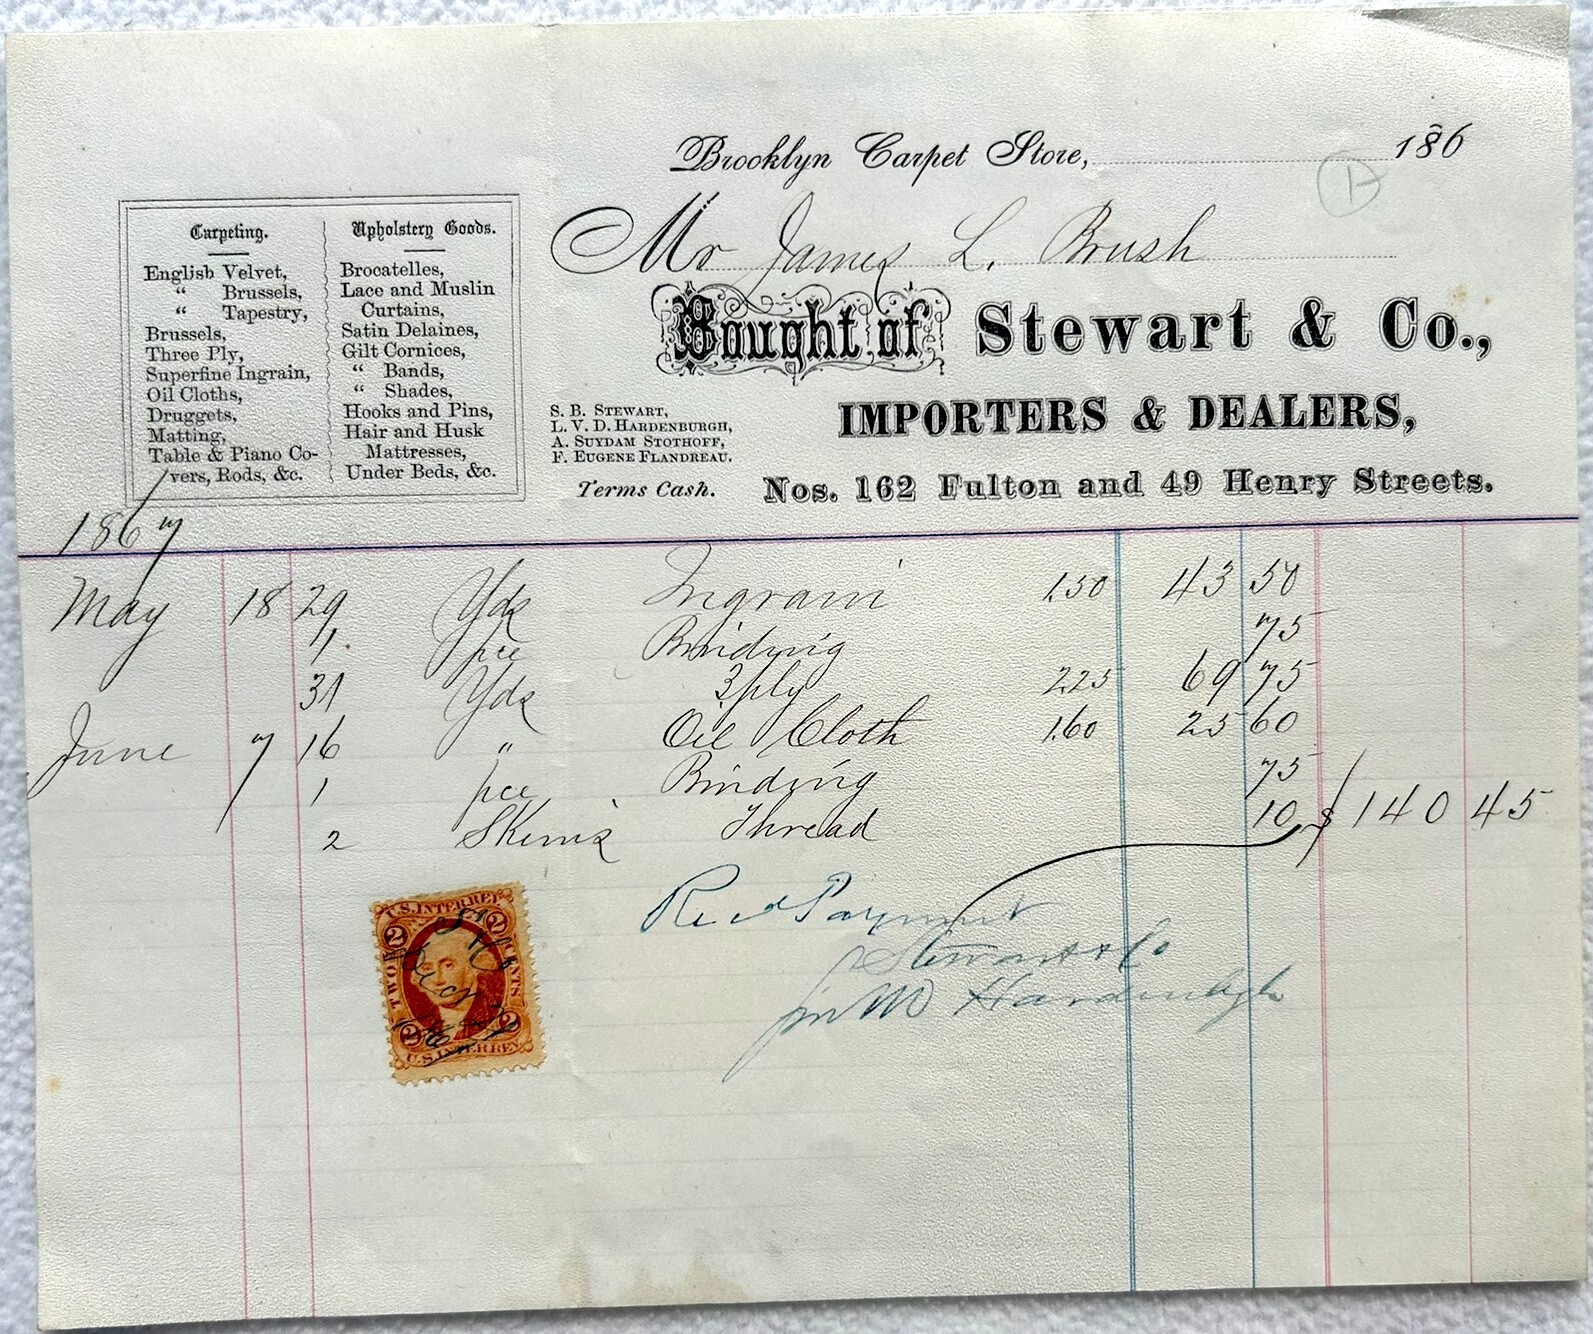 Brooklyn Carpet Store, 186
1
Mr James L. Brush
Bought of Stewart & Co.,
IMPORTERS & DEALERS,
Nos. 162 Fulton and 49 Henry Streets.
S. B. STEWART,
L. V. D. HARDENBURGH,
A. SUYDAM STOTHOFF,
F. EUGENE FLANDREAU.
Terms Cash.
Carpeting.
English Velvet,
“ Brussels,
“ Tapestry,
Brussels,
Three Ply,
Superfine Ingrain,
Oil Cloths,
Druggets,
Matting,
Table & Piano Co-
vers, Rods, &c.
Upholstery Goods.
Brocatelles,
Lace and Muslin
Curtains,
Satin Delaines,
Gilt Cornices,
“ Bands,
“ Shades,
Hooks and Pins,
Hair and Husk
Mattresses,
Under Beds, &c.
1867
May 18 29 Yds Ingrain 1.50 43 50
1 pce Binding 75
31 Yds 3 ply 2.25 69 75
June 7 16 " Oil Cloth 1.60 25 60
1 pce Binding 75
2 Skeins Thread 10 $140 45
Recd Payment
Stewart & Co
Hardenbergh
U.S. INTER. REV.
2 2
TWO CENTS
2 2
U.S. INTER. REV.